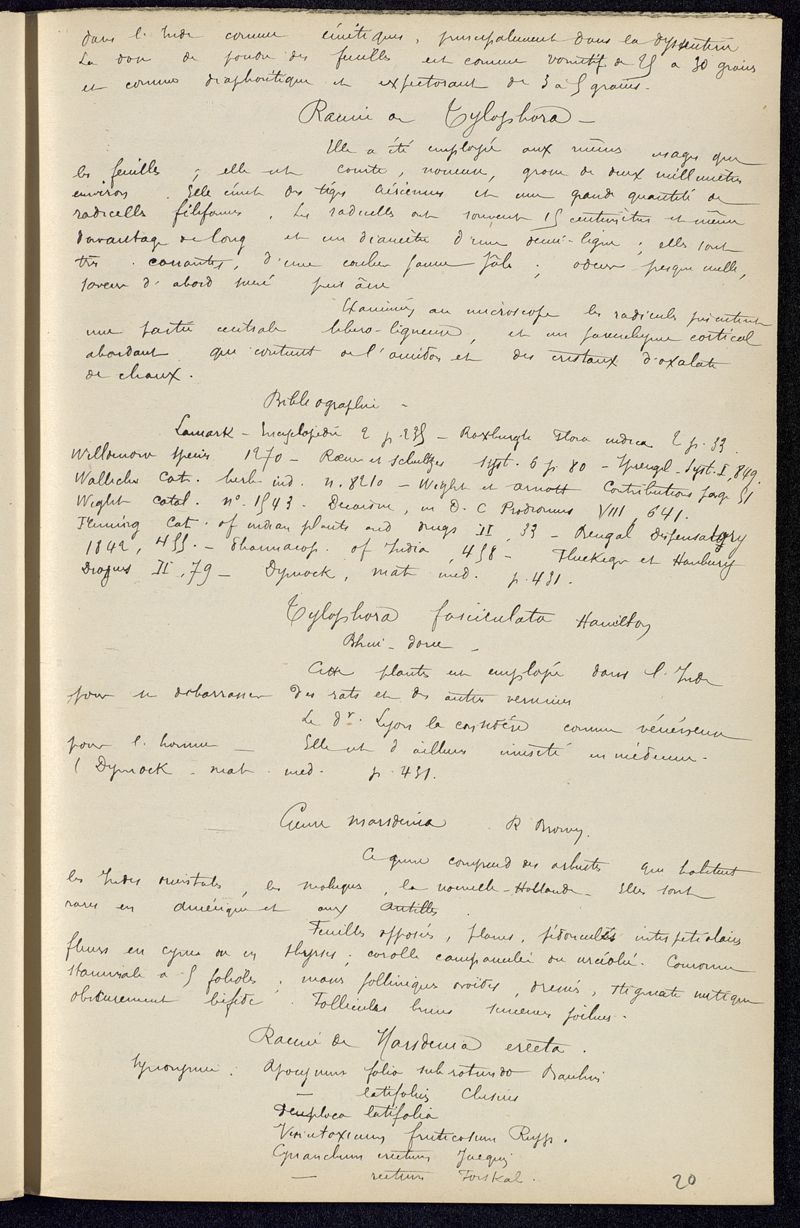 dans l'Inde comme émétiques, principalement dans la dysenterie
La dose de poudre des feuilles est comme vomitif de 25 à 30 grains
et comme diaphorétique et expectorant de 3 à 5 grains.
Racine de Tylophora -
Elle a été employée aux mêmes usages que
les feuilles ; elle est courte, noueuse, grosse de deux millimètres
environ. Elle émet des tiges aériennes et une grande quantité de
radicelles filiformes. Les radicelles ont souvent 15 centimètres et même
davantage de long et un diamètre d'une demi-ligne ; elles sont
très cassantes, d'une couleur jaune pâle ; odeur presque nulle,
saveur d'abord sucrée puis âcre
Examinées au microscope les radicules présentent
une partie centrale libero-ligneuse, et un parenchyme cortical
abondant qui contient de l'amidon et des cristaux d'oxalate
de chaux.
Bibliographie -
Lamark - Encyclopédie 2 p. 235 - Roxburgh Flora indica 2 p. 33
Willdenow species 1270 - Rœm et Schultes syst. 6 p 80 - Sprengl. Syst. I, 849.
Wallichs Cat. herb. ind. n. 8210 - Wight et Arnott Contributions page 51
Wight catal. n° 1543. Decaisne, in D. C Prodromus VIII, 641.
Fleming Cat. of indian plants and drugs II, 33 - Bengal Dispensatory
1842, 455. - Pharmacop. of India, 458 - Fluckiger et Hanbury
Drogues II, 79 - Dymock, mat. med. p. 431.
Tylophora fasciculata Hamilton
Bhui-dore -
Cette plante est employée dans l'Inde
pour se débarrasser des rats et des autres vermines
Le dr. Lyon la considère comme vénéneuse
pour l'homme - Elle est d'ailleurs inusité en médecine.
( Dymock. mat. med. p. 431.
Genre Marsdenia R Brown.
Ce genre comprend des arbustes qui habitent
les Indes orientales, les Moluques, la nouvelle-Hollande - Elles sont
rares en Amérique et aux Antilles.
Feuilles opposées, planes, pédoncules interpétiolaires
fleurs en cymes ou en thyrses ; corolle campanulée ou urcéolée. Couronne
staminale à 5 folioles ; masses polliniques ovoïdes, dressés, stigmate mutique
obscurement bifide. Follicules lisses semences poilues.
Racine de Marsdenia erecta.
Synonymie. Apocynum folio subrotundo Bauhin
- latifolium Clusius
Periploca latifolia
Vincetoxicum fruticosum Rupp.
Cynanchum erectum Jacquin
- rectum Forskal.
20